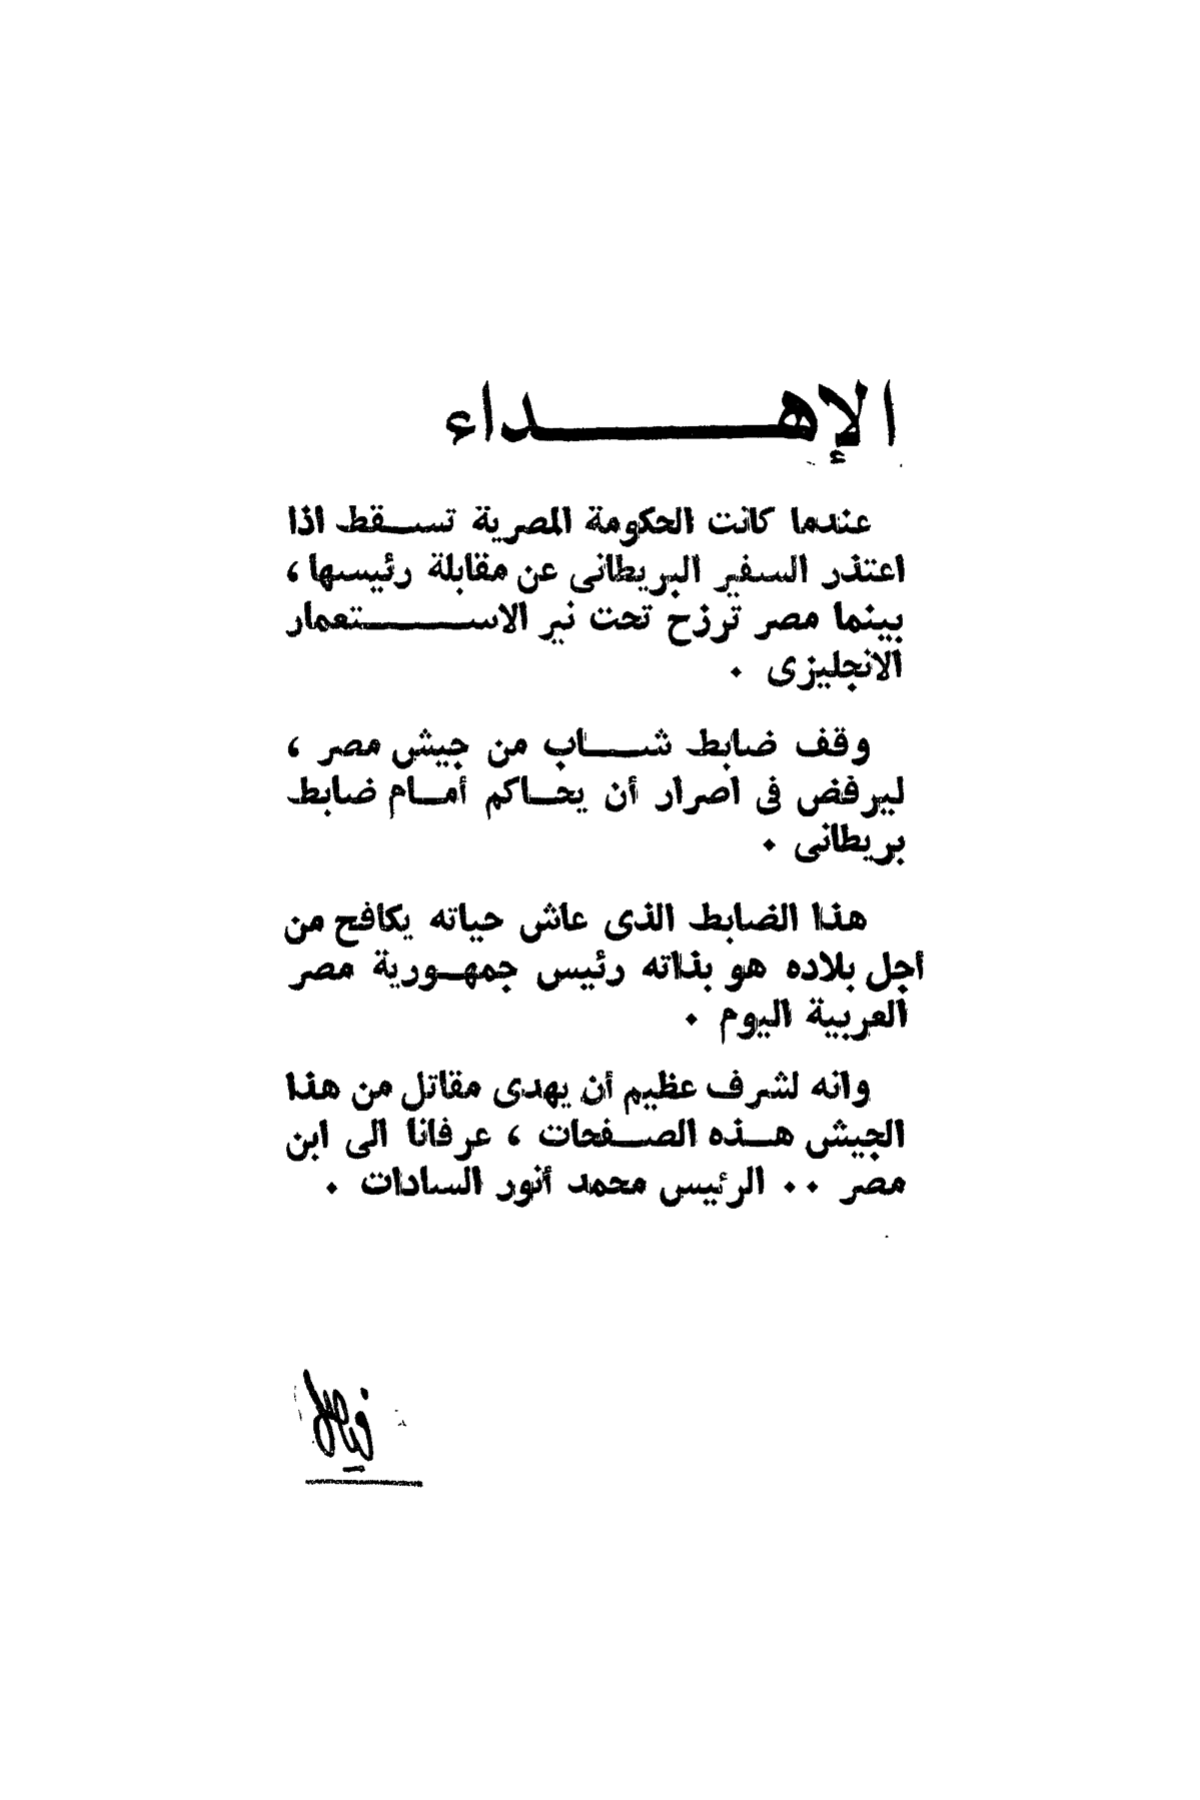 الإهـــــداء
عندما كانت الحكومة المصرية تسقط اذا
اعتذر السفير البريطانى عن مقابلة رئيسها ،
بينما مصر ترزح تحت نير الاستعمار
الانجليزى .
وقف ضابط شاب من جيش مصر ،
ليرفض فى اصرار أن يحاكم أمام ضابط
بريطانى .
هذا الضابط الذى عاش حياته يكافح من
أجل بلاده هو بذاته رئيس جمهورية مصر
العربية اليوم .
وانه لشرف عظيم أن يهدى مقاتل من هذا
الجيش هذه الصفحات ، عرفانا الى ابن
مصر .. الرئيس محمد أنور السادات .